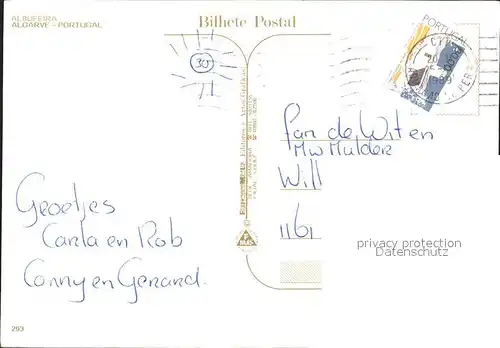 ALBUFEIRA
ALGARVE - PORTUGAL
Bilhete Postal
30
PORTUGAL
Groetjes
Carla en Rob
Conny en Gerard.
Fam de Wit en
Mw Mulder
Will
1161
privacy protection
Datenschutz
293